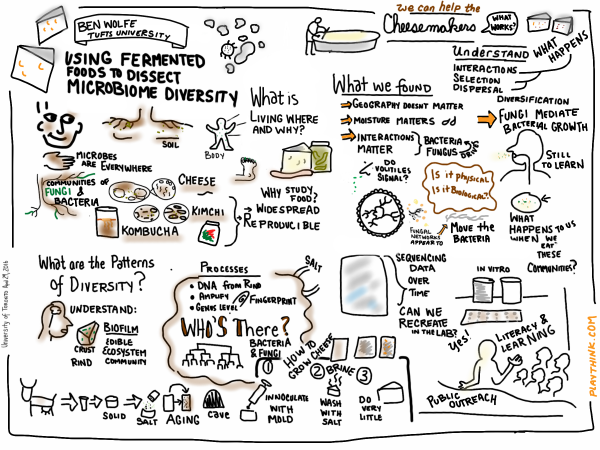 BEN WOLFE
TUFTS UNIVERSITY
USING FERMENTED
FOODS TO DISSECT
MICROBIOME DIVERSITY
SOIL
MICROBES
ARE EVERYWHERE
COMMUNITIES OF
FUNGI &
BACTERIA
CHEESE
KIMCHI
KOMBUCHA
BODY
What is
LIVING WHERE
AND WHY?
WHY STUDY
FOOD?
→ WIDESPREAD
→ REPRODUCIBLE
we can help the
Cheesemakers
WHAT
WORKS?
UNDERSTAND
WHAT HAPPENS
INTERACTIONS
SELECTION
DISPERSAL
DIVERSIFICATION
What we found
GEOGRAPHY DOESNT MATTER
MOISTURE MATTERS
INTERACTIONS
MATTER
BACTERIA
FUNGUS
DRIVE
FUNGI MEDIATE
BACTERIAL GROWTH
DO
VOLITILES
SIGNAL?
Is it physical
Is it Biological?
FUNGAL
NETWORKS
APPEAR TO
Move the
BACTERIA
STILL
TO LEARN
WHAT
HAPPENS TO US
WHEN WE
EAT
THESE
COMMUNITIES?
What are the Patterns
of DIVERSITY?
UNDERSTAND:
CRUST
RIND
BIOFILM
EDIBLE
ECOSYSTEM
COMMUNITY
PROCESSES
• DNA from RIND
• AMPLIFY
• GENUS LEVEL
FINGERPRINT
WHO'S There?
BACTERIA
& FUNGI
SALT
SALT
HOW TO
GROW CHEESE
① 
② BRINE ③
INNOCULATE
WITH
MOLD
WASH
WITH
SALT
DO
VERY
LITTLE
SOLID
SALT
AGING
CAVE
SEQUENCING
DATA
OVER
TIME
CAN WE
RECREATE
IN THE LAB?
IN VITRO
Yes!
LITERACY &
LEARNING
PUBLIC
OUTREACH
University of Toronto Apr 29, 2016
PLAYTHINK.COM